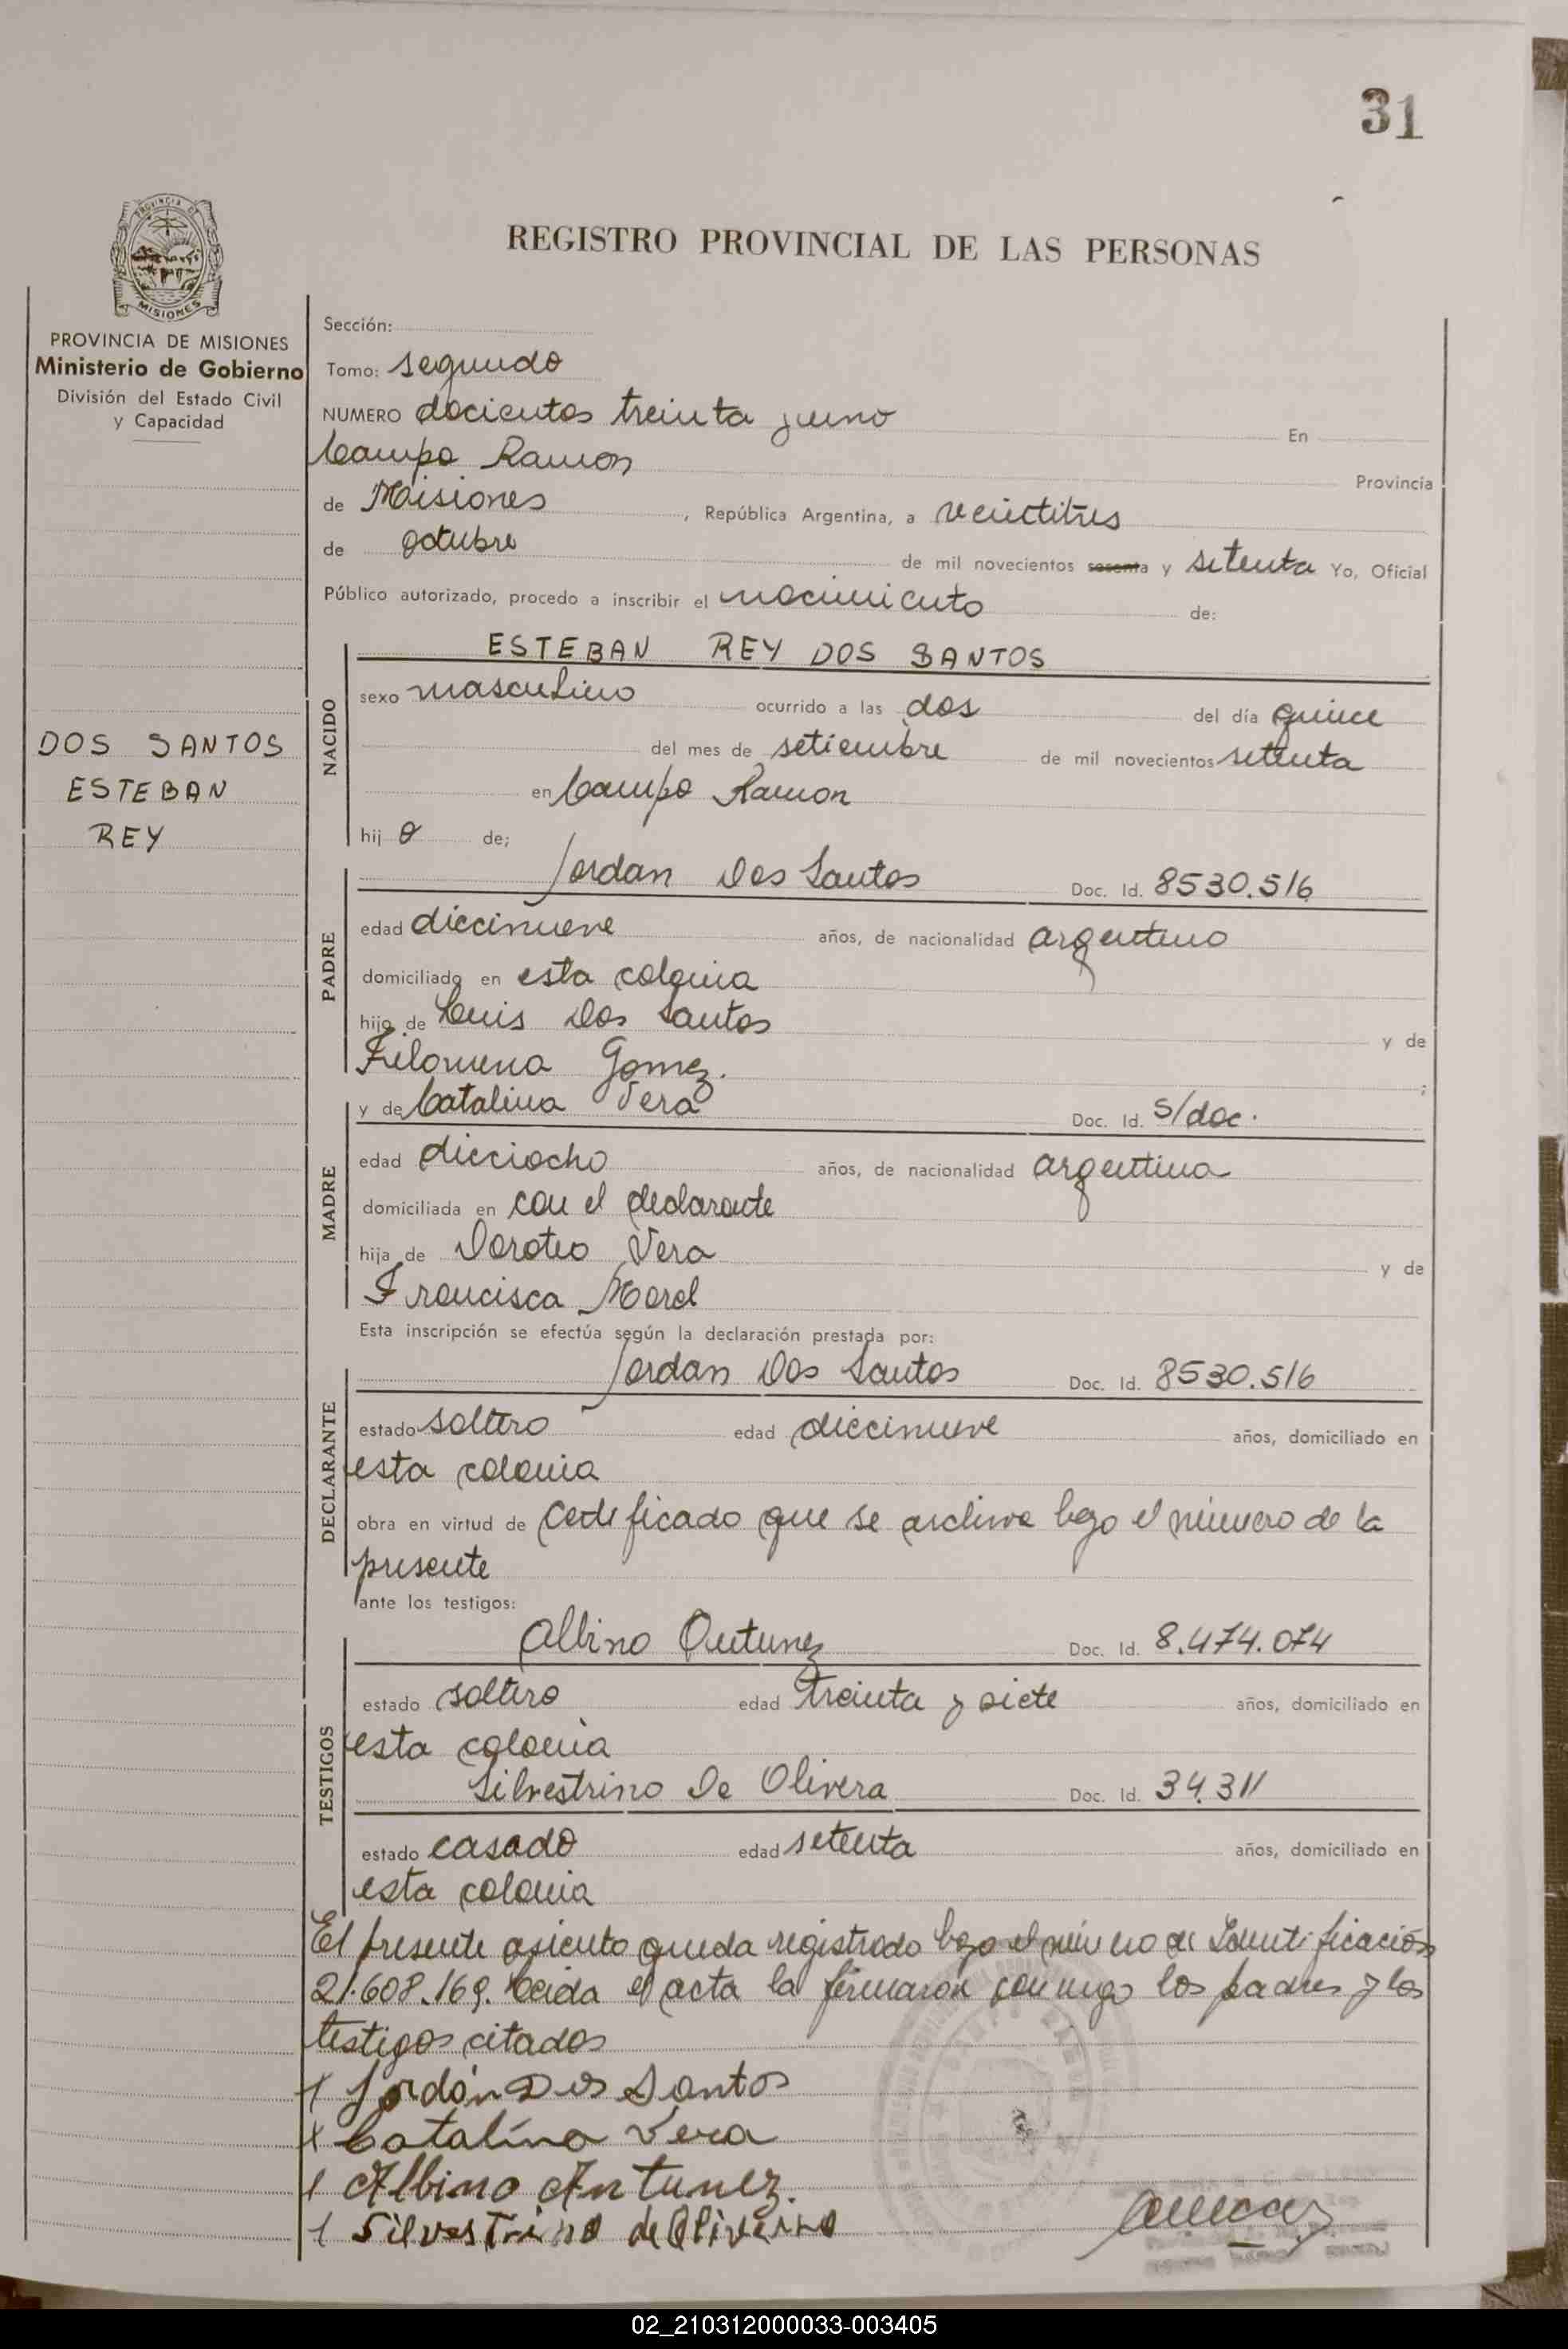 31
REGISTRO PROVINCIAL DE LAS PERSONAS
PROVINCIA DE
MISIONES
PROVINCIA DE MISIONES
Ministerio de Gobierno
División del Estado Civil
y Capacidad
DOS SANTOS
ESTEBAN
REY
Sección:
Tomo: segundo
NUMERO docientos treinta y uno En
Campo Ramon Provincia
de Misiones, República Argentina, a veintitres
de octubre de mil novecientos sesenta y setenta Yo, Oficial
Público autorizado, procedo a inscribir el nacimiento de:
NACIDO
ESTEBAN REY DOS SANTOS
sexo masculino ocurrido a las dos del día quince
del mes de setiembre de mil novecientos setenta
en Campo Ramon
hij o de;
PADRE
Jordan Dos Santos Doc. Id. 8530.516
edad diecinueve años, de nacionalidad argentino
domiciliado en esta colonia
hijo de Luis Dos Santos y de
Filomena Gomez. ;
MADRE
y de Catalina Vera Doc. Id. s/doc.
edad dieciocho años, de nacionalidad argentina
domiciliada en con el declarante
hija de Doroteo Vera y de
Francisca Morel
Esta inscripción se efectúa según la declaración prestada por:
DECLARANTE
Jordan Dos Santos Doc. Id. 8530.516
estado soltero edad diecinueve años, domiciliado en
esta colonia
obra en virtud de certificado que se archiva bajo el número de la
presente
ante los testigos:
TESTIGOS
Albino Antunez Doc. Id. 8.474.074
estado soltero edad treinta y siete años, domiciliado en
esta colonia
Silvestrino De Olivera Doc. Id. 34.311
estado casado edad setenta años, domiciliado en
esta colonia
El presente asiento queda registrado bajo el número de Identificación
21.608.169. Leida el acta la firmaron conmigo los padres y los
testigos citados
Jordán Dos Santos
Catalina Vera
Albino Antunez.
Silvestrino de Oliveira
02_210312000033-003405